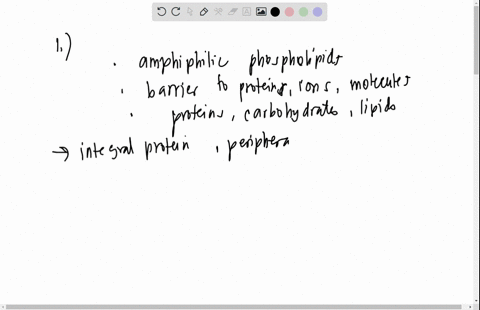 1.)
· amphiphilic phospholipids
· barrier to proteins, ions, molecules
· proteins, carbohydrates, lipids
→ integral protein, periphera